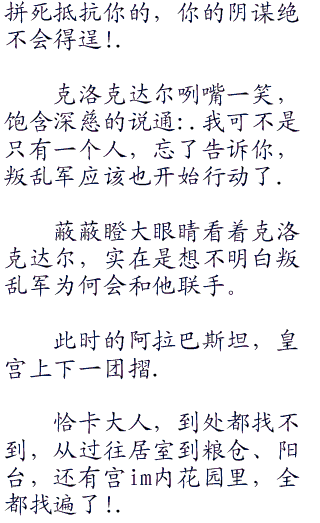 拼死抵抗你的，你的阴谋绝
不会得逞!.
克洛克达尔咧嘴一笑，
饱含深慈的说通:.我可不是
只有一个人，忘了告诉你，
叛乱军应该也开始行动了.
蔽蔽瞪大眼睛看着克洛
克达尔，实在是想不明白叛
乱军为何会和他联手。
此时的阿拉巴斯坦，皇
宫上下一团摺.
恰卡大人，到处都找不
到，从过往居室到粮仓、阳
台，还有宫im内花园里，全
都找遍了!.